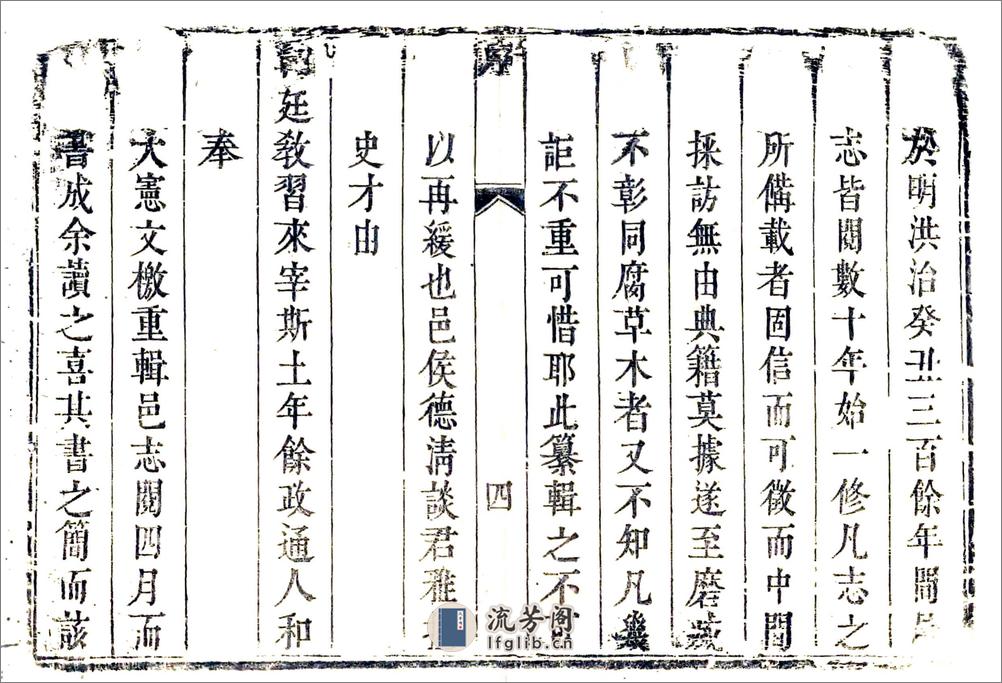 於明洪治癸丑三百餘年間
志皆閱數十年始一修凡志之
所備載者固信而可徵而中間
採訪無由典籍莫據遂至磨滅
不彰同腐草木者又不知凡幾
詎不重可惜耶此纂輯之不
以再緩也邑侯德清談君雅
史才由
廷教習來宰斯土年餘政通人和
奉
大憲文檄重輯邑志閱四月而
書成余讀之喜其書之簡而該
序
四
流芳阁
lfglib.cn